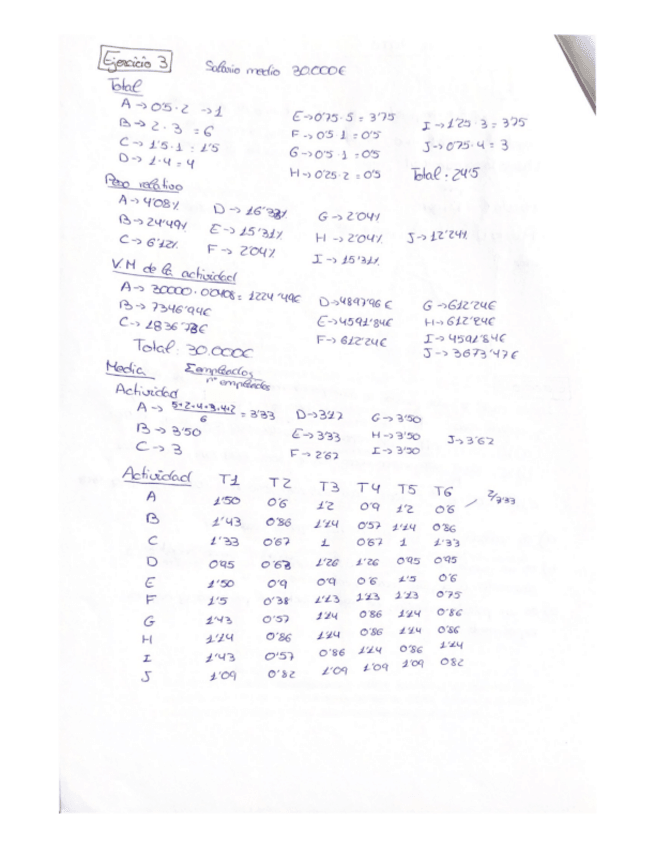 Ejercicio 3 Salario medio 30.000€
Total
A → 0'5·2 → 1 E → 0'75·5 = 3'75 I → 1'25·3 = 3'75
B → 2·3 = 6 F → 0'5·1 = 0'5 J → 0'75·4 = 3
C → 1'5·1 = 1'5 G → 0'5·1 = 0'5
D → 1·4 = 4 H → 0'25·2 = 0'5 Total = 24'5
Peso relativo
A → 4'08% D → 16'33% G → 2'04%
B → 24'49% E → 15'31% H → 2'04% J → 12'24%
C → 6'12% F → 2'04% I → 15'31%
V.M de la actividad
A → 30000·0'0408 = 1224'49€ D → 4897'96€ G → 612'24€
B → 7346'94€ E → 4591'84€ H → 612'24€
C → 1836'73€ F → 612'24€ I → 4591'84€
Total: 30.000€ J → 3673'47€
Media Σempleados / nº empleados
Actividad
A → 5+2+4+3+4+2 / 6 = 3'33 D → 3'17 G → 3'50
B → 3'50 E → 3'33 H → 3'50 J → 3'67
C → 3 F → 2'67 I → 3'50
Actividad T1 T2 T3 T4 T5 T6
A 1'50 0'6 1'2 0'9 1'2 0'6 2/3'33
B 1'43 0'86 1'14 0'57 1'14 0'86
C 1'33 0'67 1 0'67 1 1'33
D 0'95 0'63 1'26 1'26 0'95 0'95
E 1'50 0'9 0'9 0'6 1'5 0'6
F 1'5 0'38 1'13 1'13 1'13 0'75
G 1'43 0'57 1'14 0'86 1'14 0'86
H 1'14 0'86 1'14 0'86 1'14 0'86
I 1'43 0'57 0'86 1'14 0'86 1'14
J 1'09 0'82 1'09 1'09 1'09 0'82